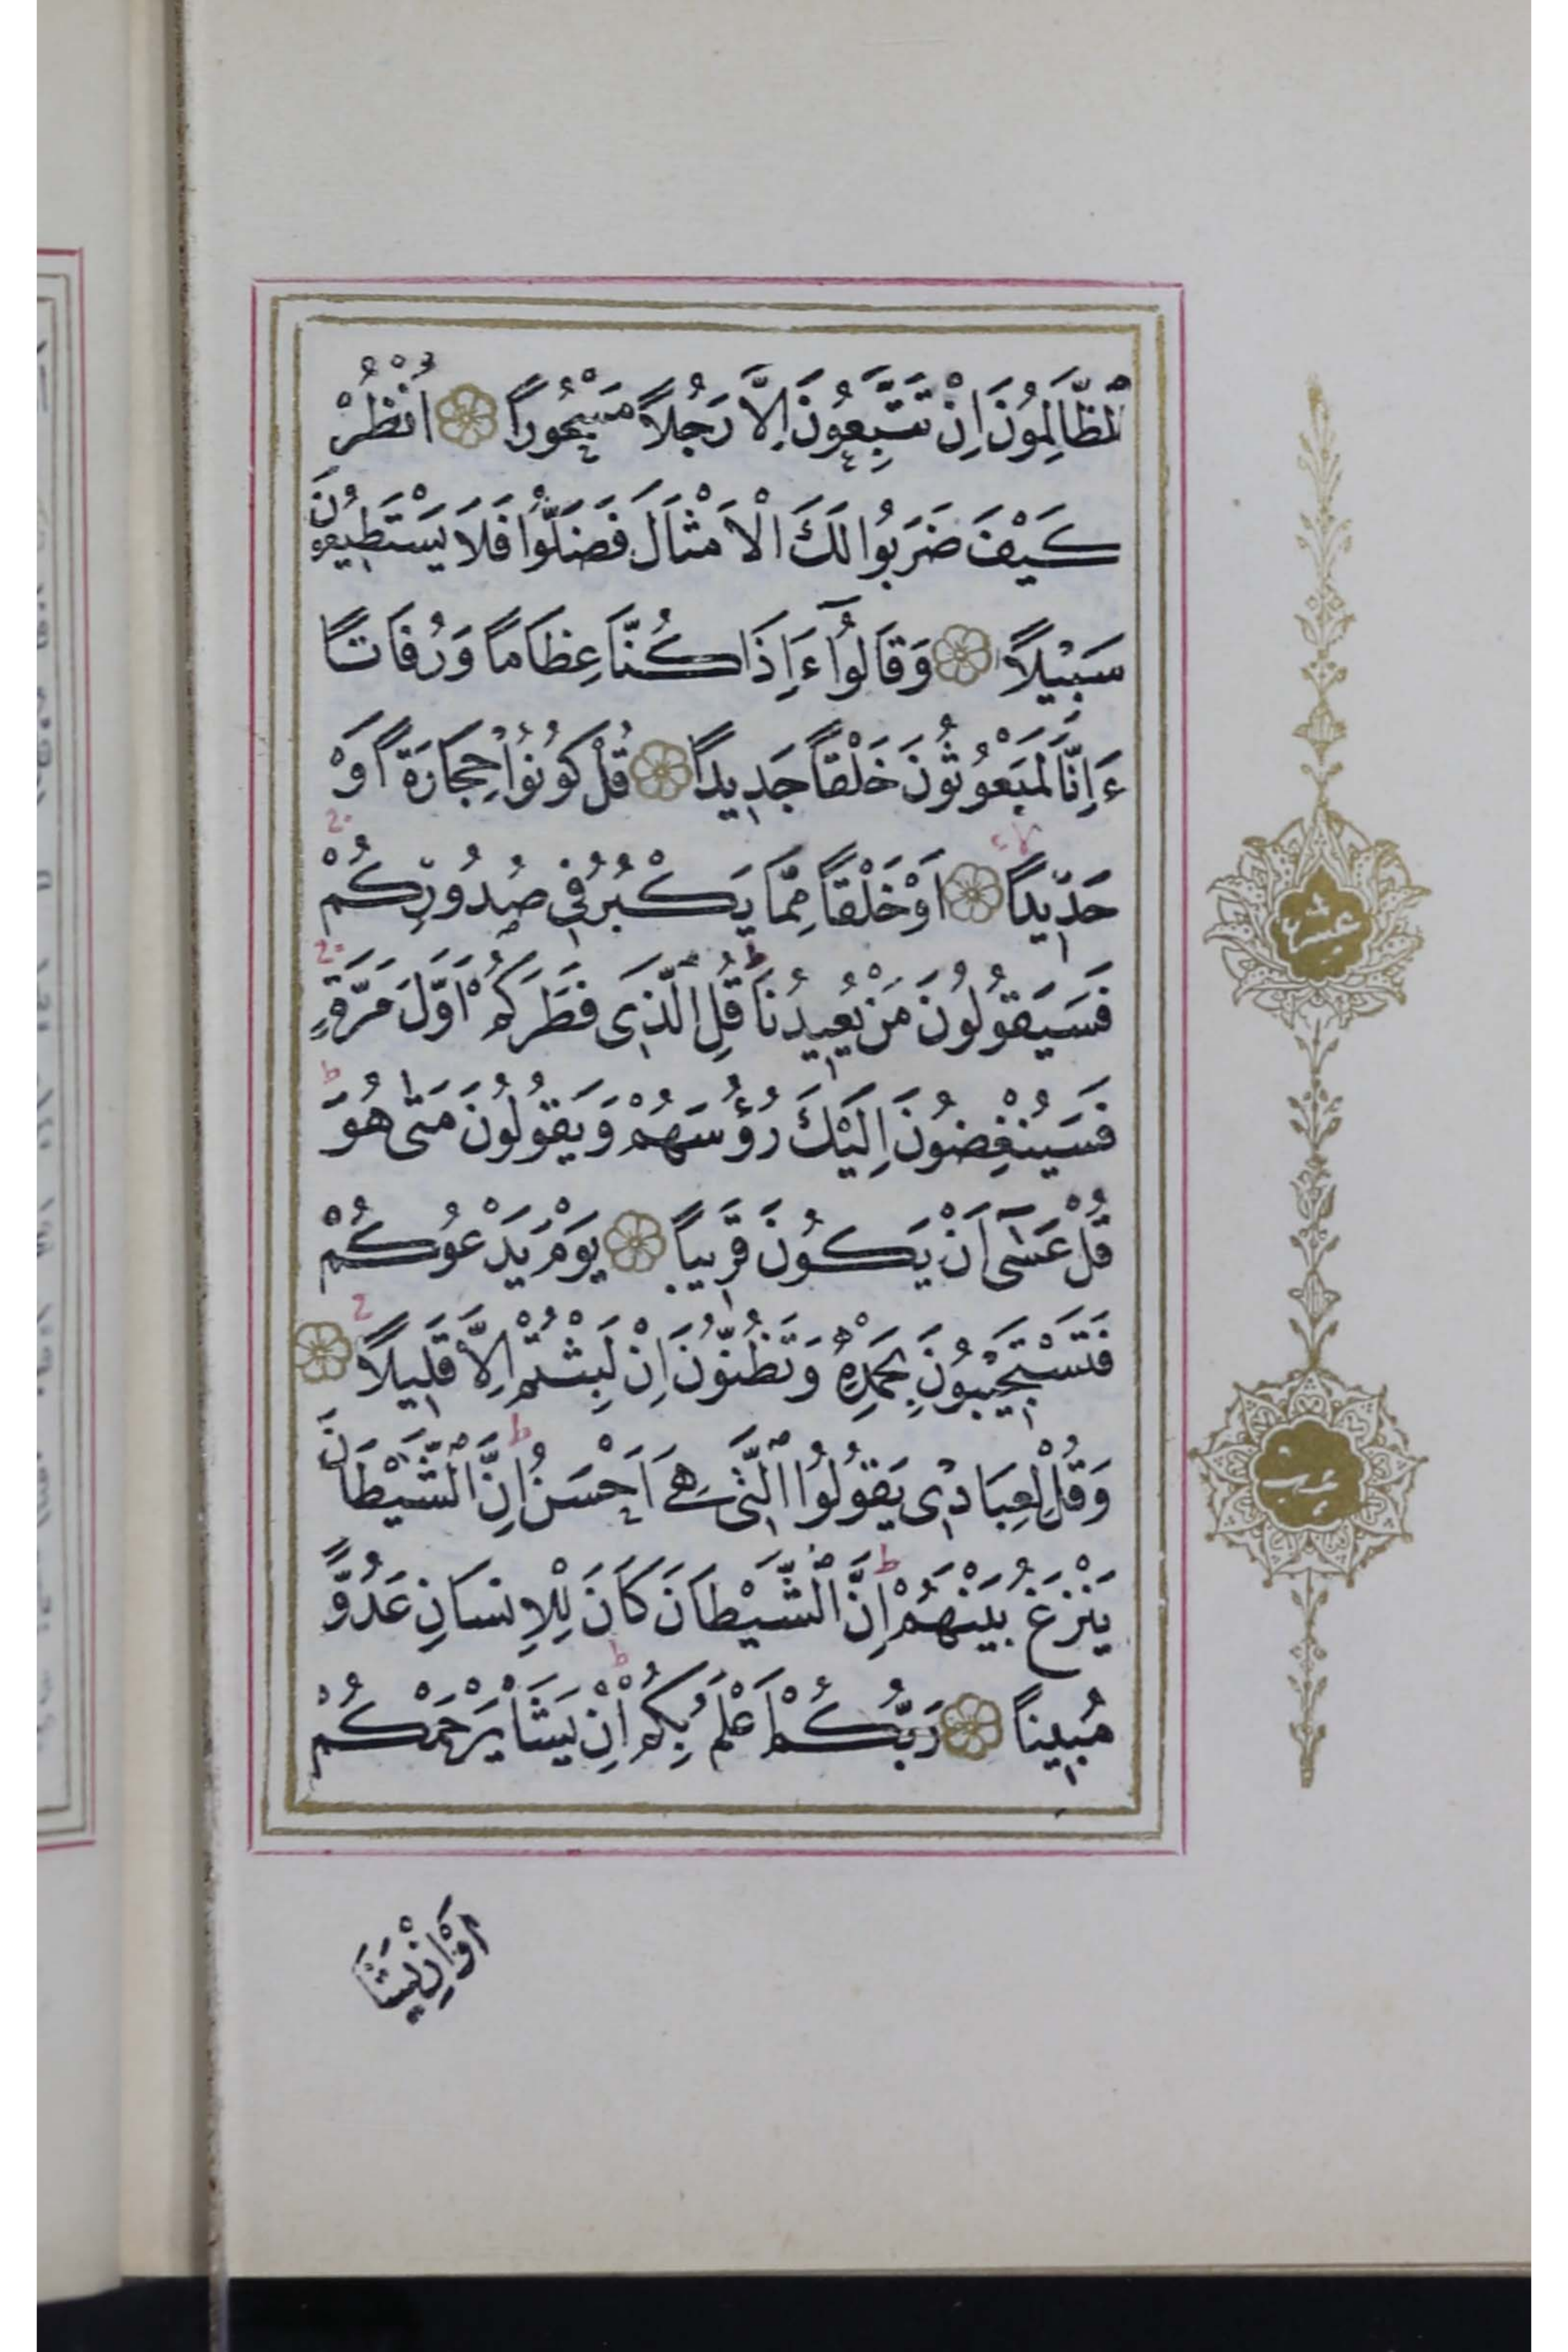 الظَّالِمُونَ اِنْ تَتَّبِعُونَ اِلَّا رَجُلًا مَسْحُورًا اُنْظُرْ
كَيْفَ ضَرَبُوا لَكَ الْاَمْثَالَ فَضَلُّوا فَلَا يَسْتَطِيعُونَ
سَبِيلًا وَقَالُوٓا ءَاِذَا كُنَّا عِظَامًا وَرُفَاتًا
ءَاِنَّا لَمَبْعُوثُونَ خَلْقًا جَدِيدًا قُلْ كُونُوا حِجَارَةً اَوْ
حَدِيدًا اَوْ خَلْقًا مِمَّا يَكْبُرُ فِي صُدُورِكُمْ
فَسَيَقُولُونَ مَنْ يُعِيدُنَا قُلِ الَّذِى فَطَرَكُمْ اَوَّلَ مَرَّةٍ
فَسَيُنْغِضُونَ اِلَيْكَ رُؤُسَهُمْ وَيَقُولُونَ مَتٰى هُوَ
قُلْ عَسٰٓى اَنْ يَكُونَ قَرِيبًا يَوْمَ يَدْعُوكُمْ
فَتَسْتَجِيبُونَ بِحَمْدِهِ وَتَظُنُّونَ اِنْ لَبِثْتُمْ اِلَّا قَلِيلًا
وَقُلْ لِعِبَادِى يَقُولُوا الَّتِى هِىَ اَحْسَنُ اِنَّ الشَّيْطَانَ
يَنْزَغُ بَيْنَهُمْ اِنَّ الشَّيْطَانَ كَانَ لِلْاِنسَانِ عَدُوًّا
مُبِينًا رَبُّكُمْ اَعْلَمُ بِكُمْ اِنْ يَشَأْ يَرْحَمْكُمْ
اَوْ اِنْ يَشَأْ
عشر